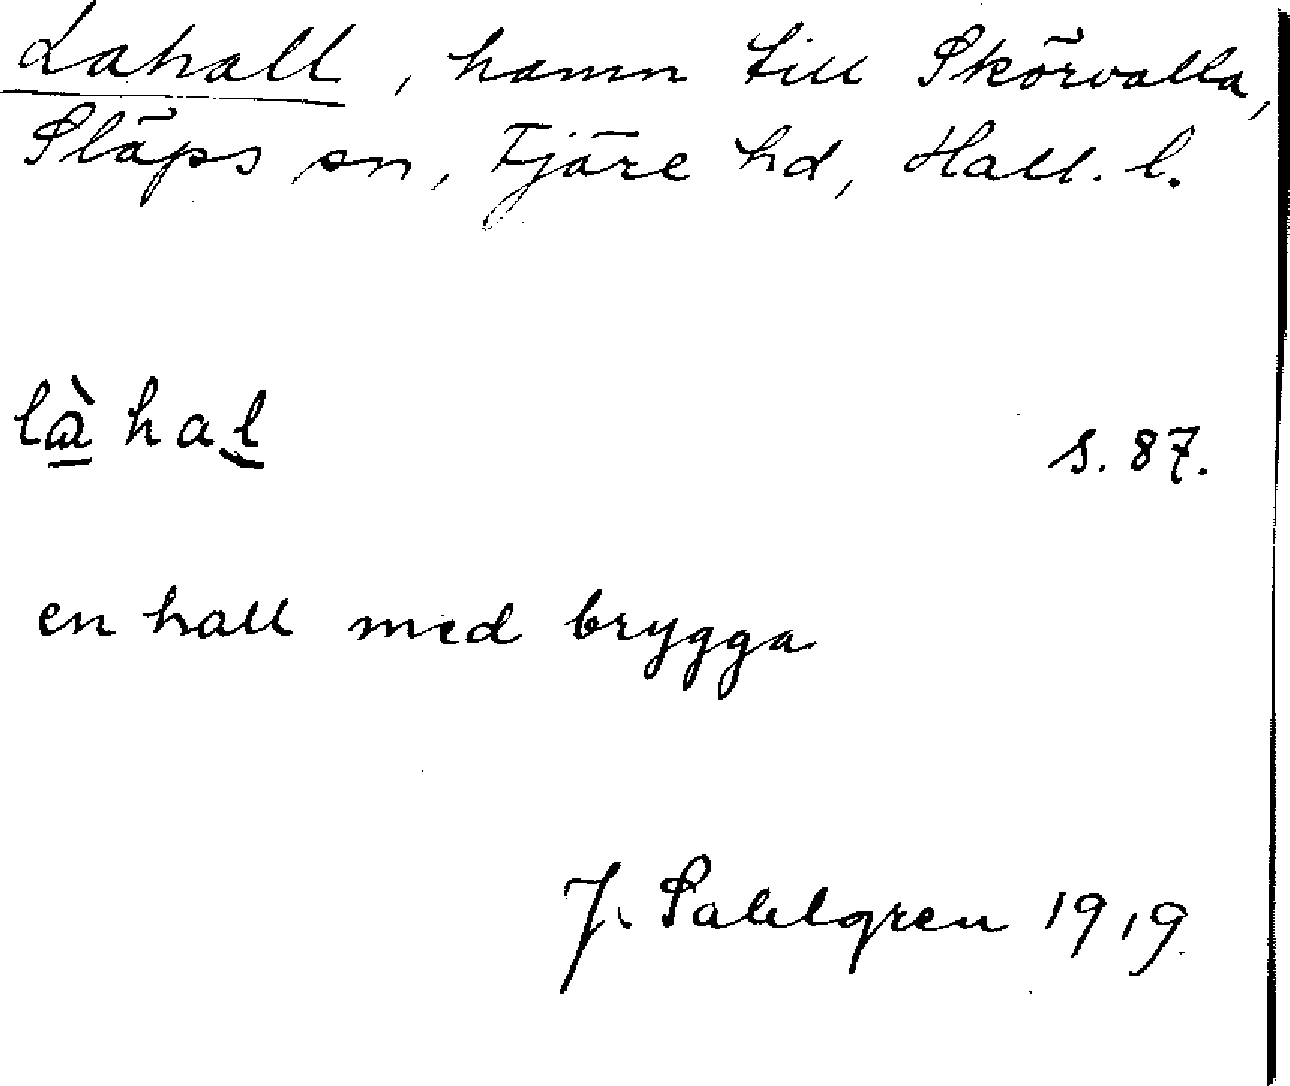 Lahall, hamn till Skörvalla,
Släps sn, Fjäre hd, Hall. l.
là hal
s. 87.
en hall med brygga
J. Sahlgren 1919